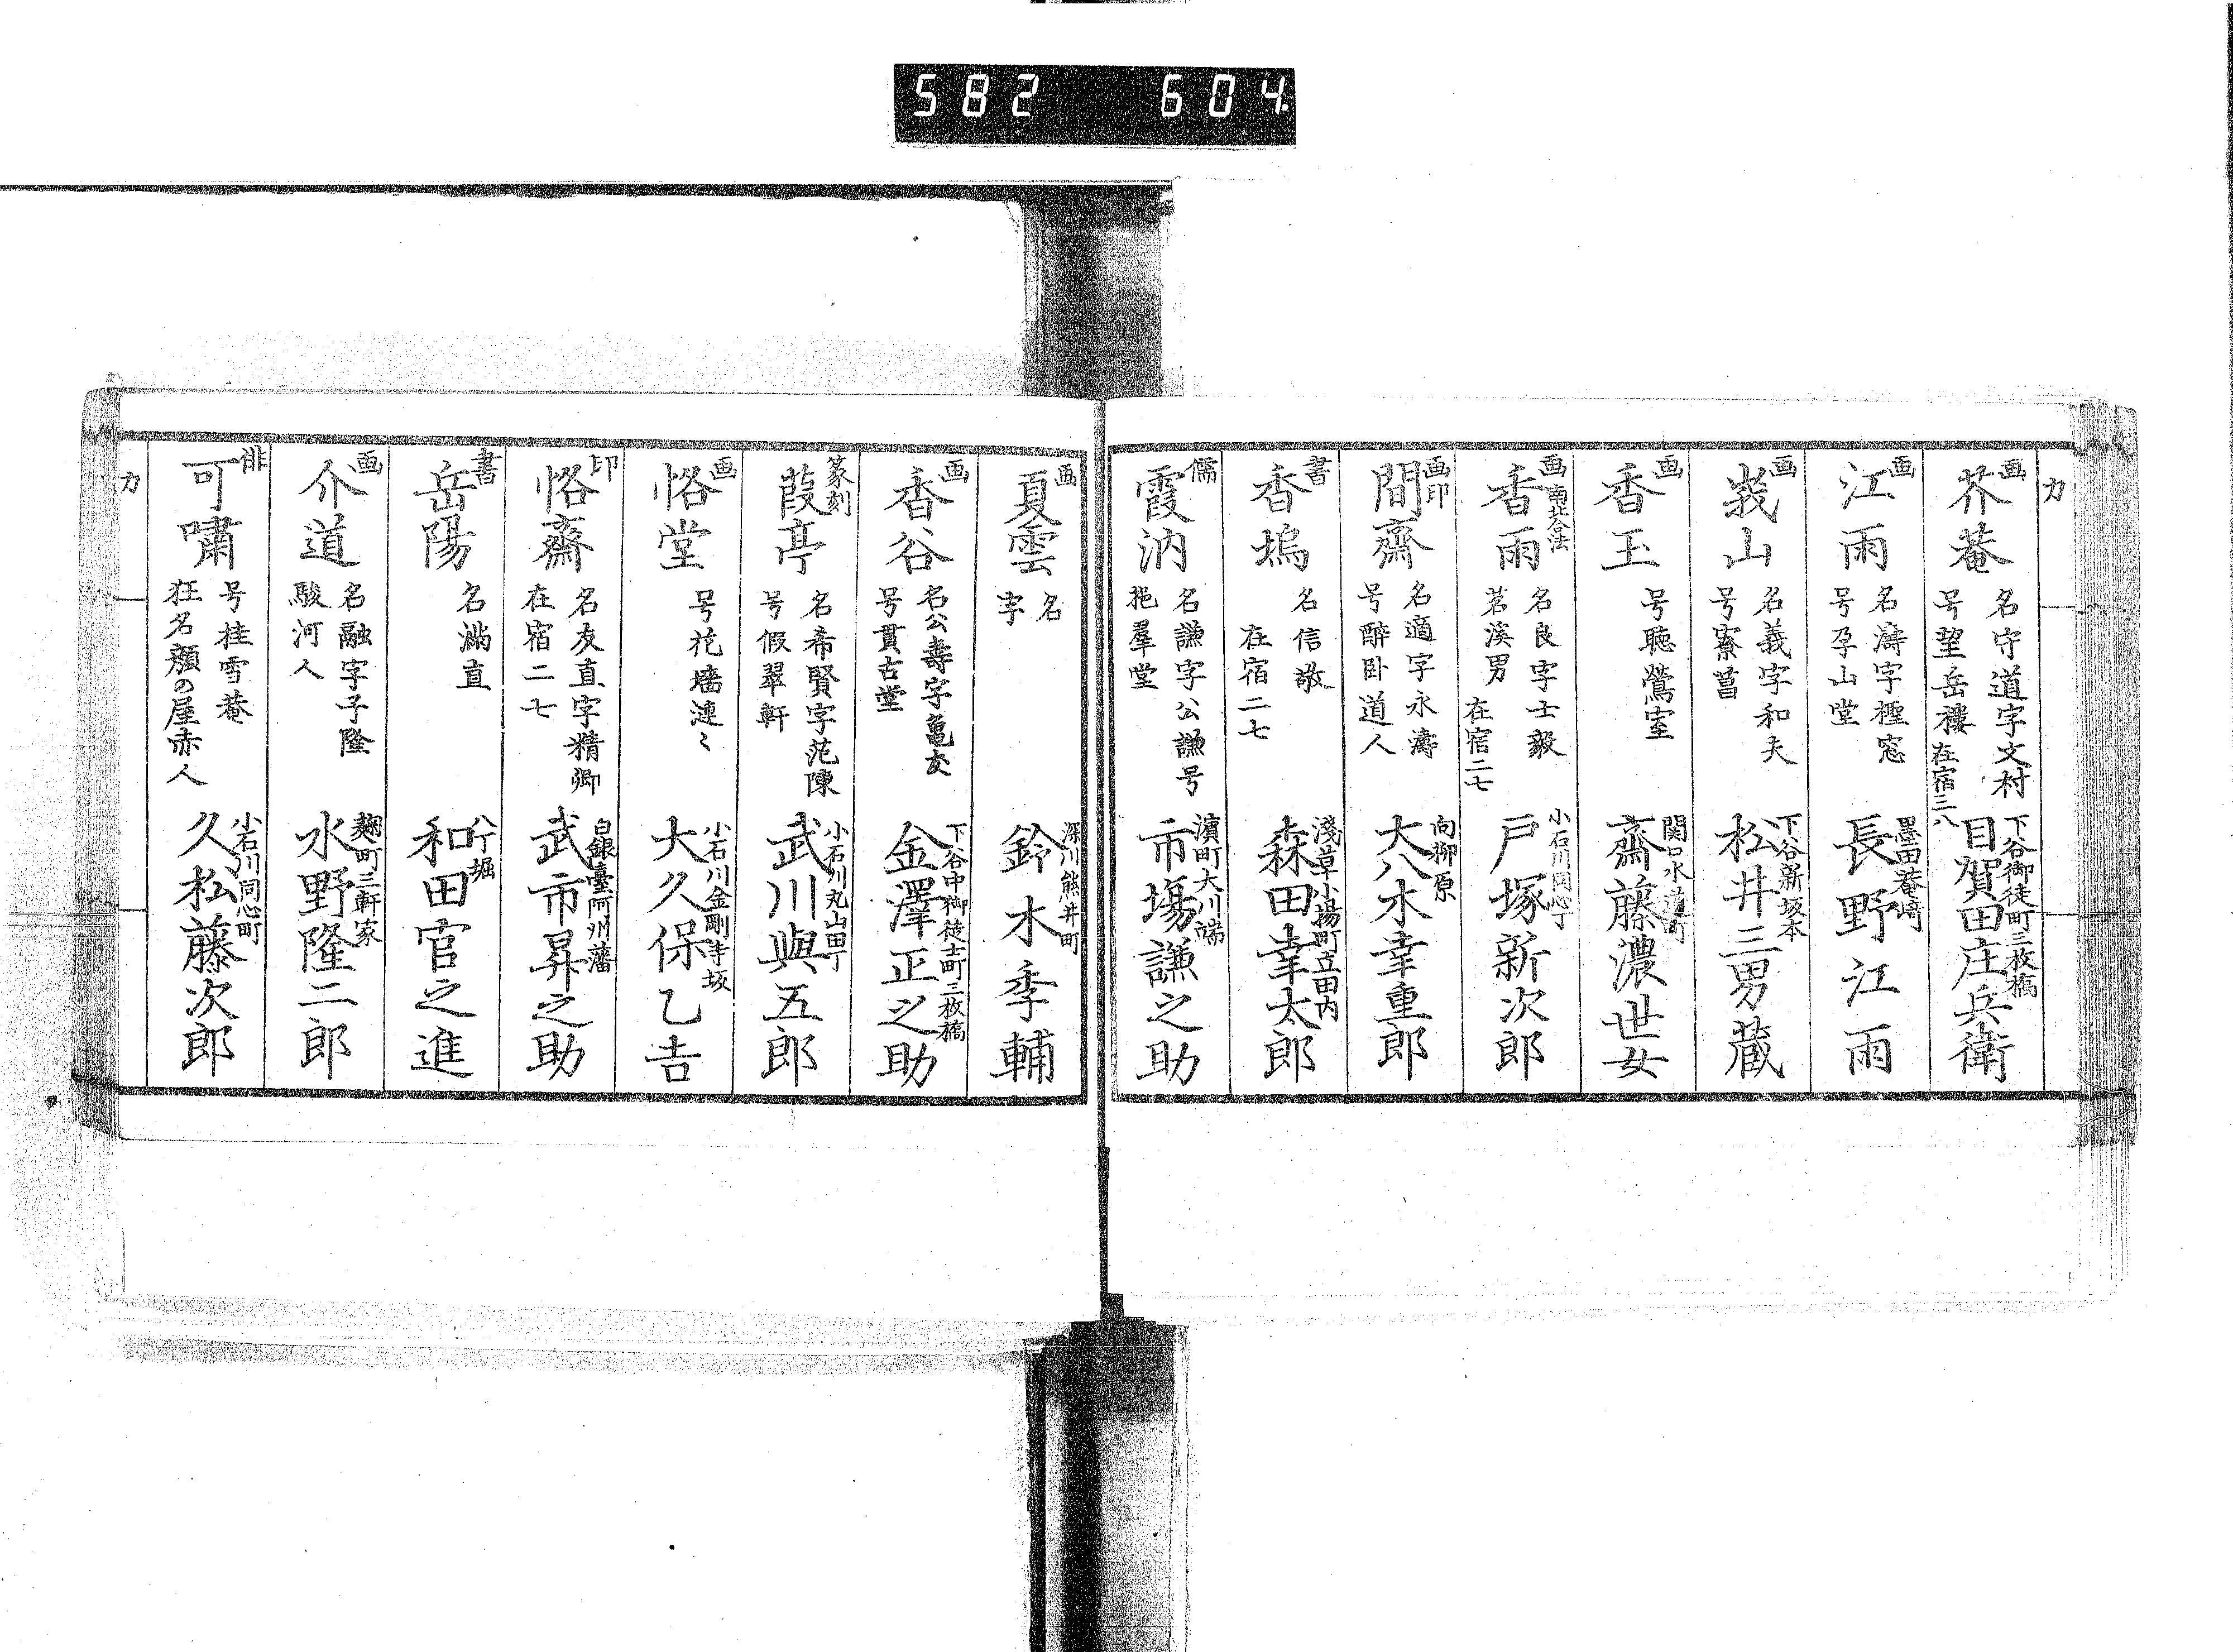 582 604.
カ
画 芥菴 名守道字文村 号望岳樓 在宿三八 下谷御徒町三枚橋 目賀田庄兵衛
画 江雨 名濤字 窓 号孕山堂 墨田菴崎 長野江雨
画 峩山 名義字和夫 号寮菖 下谷新坂本 松井三男蔵
画 香玉 号聴鶯室 関口水道町 齋藤濃世女
画 南北合法 香雨 名良字士毅 茗溪男 在宿二七 小石川同心丁 戸塚新次郎
画印 間齋 名適字永濤 号酔臥道人 向柳原 大八木幸重郎
書 香塢 名信敬 在宿二七 淺草小揚町立田内 森田幸太郎
儒 霞汭 名謙字公謙号 拖羣堂 濱町大川端 市塲謙之助
画 夏雲 名 字 深川熊井町 鈴木季輔
画 香谷 名公壽字亀友 号貫古堂 下谷中御徒士町三枚橋 金澤正之助
篆刻 葭亭 名希賢字范陳 号假翠軒 小石川丸山田丁 武川與五郎
画 恪堂 号花墻漣〻 小石川金剛寺坂 大久保乙吉
印 恪齋 名友直字精卿 在宿二七 白銀臺阿州藩 武市昇之助
書 岳陽 名滿直 八丁堀 和田官之進
画 介道 名融字子隆 駿河人 麹町三軒家 水野隆二郎
俳 可嘯 号桂雪菴 狂名顔の屋赤人 小石川同心町 久松藤次郎
カ